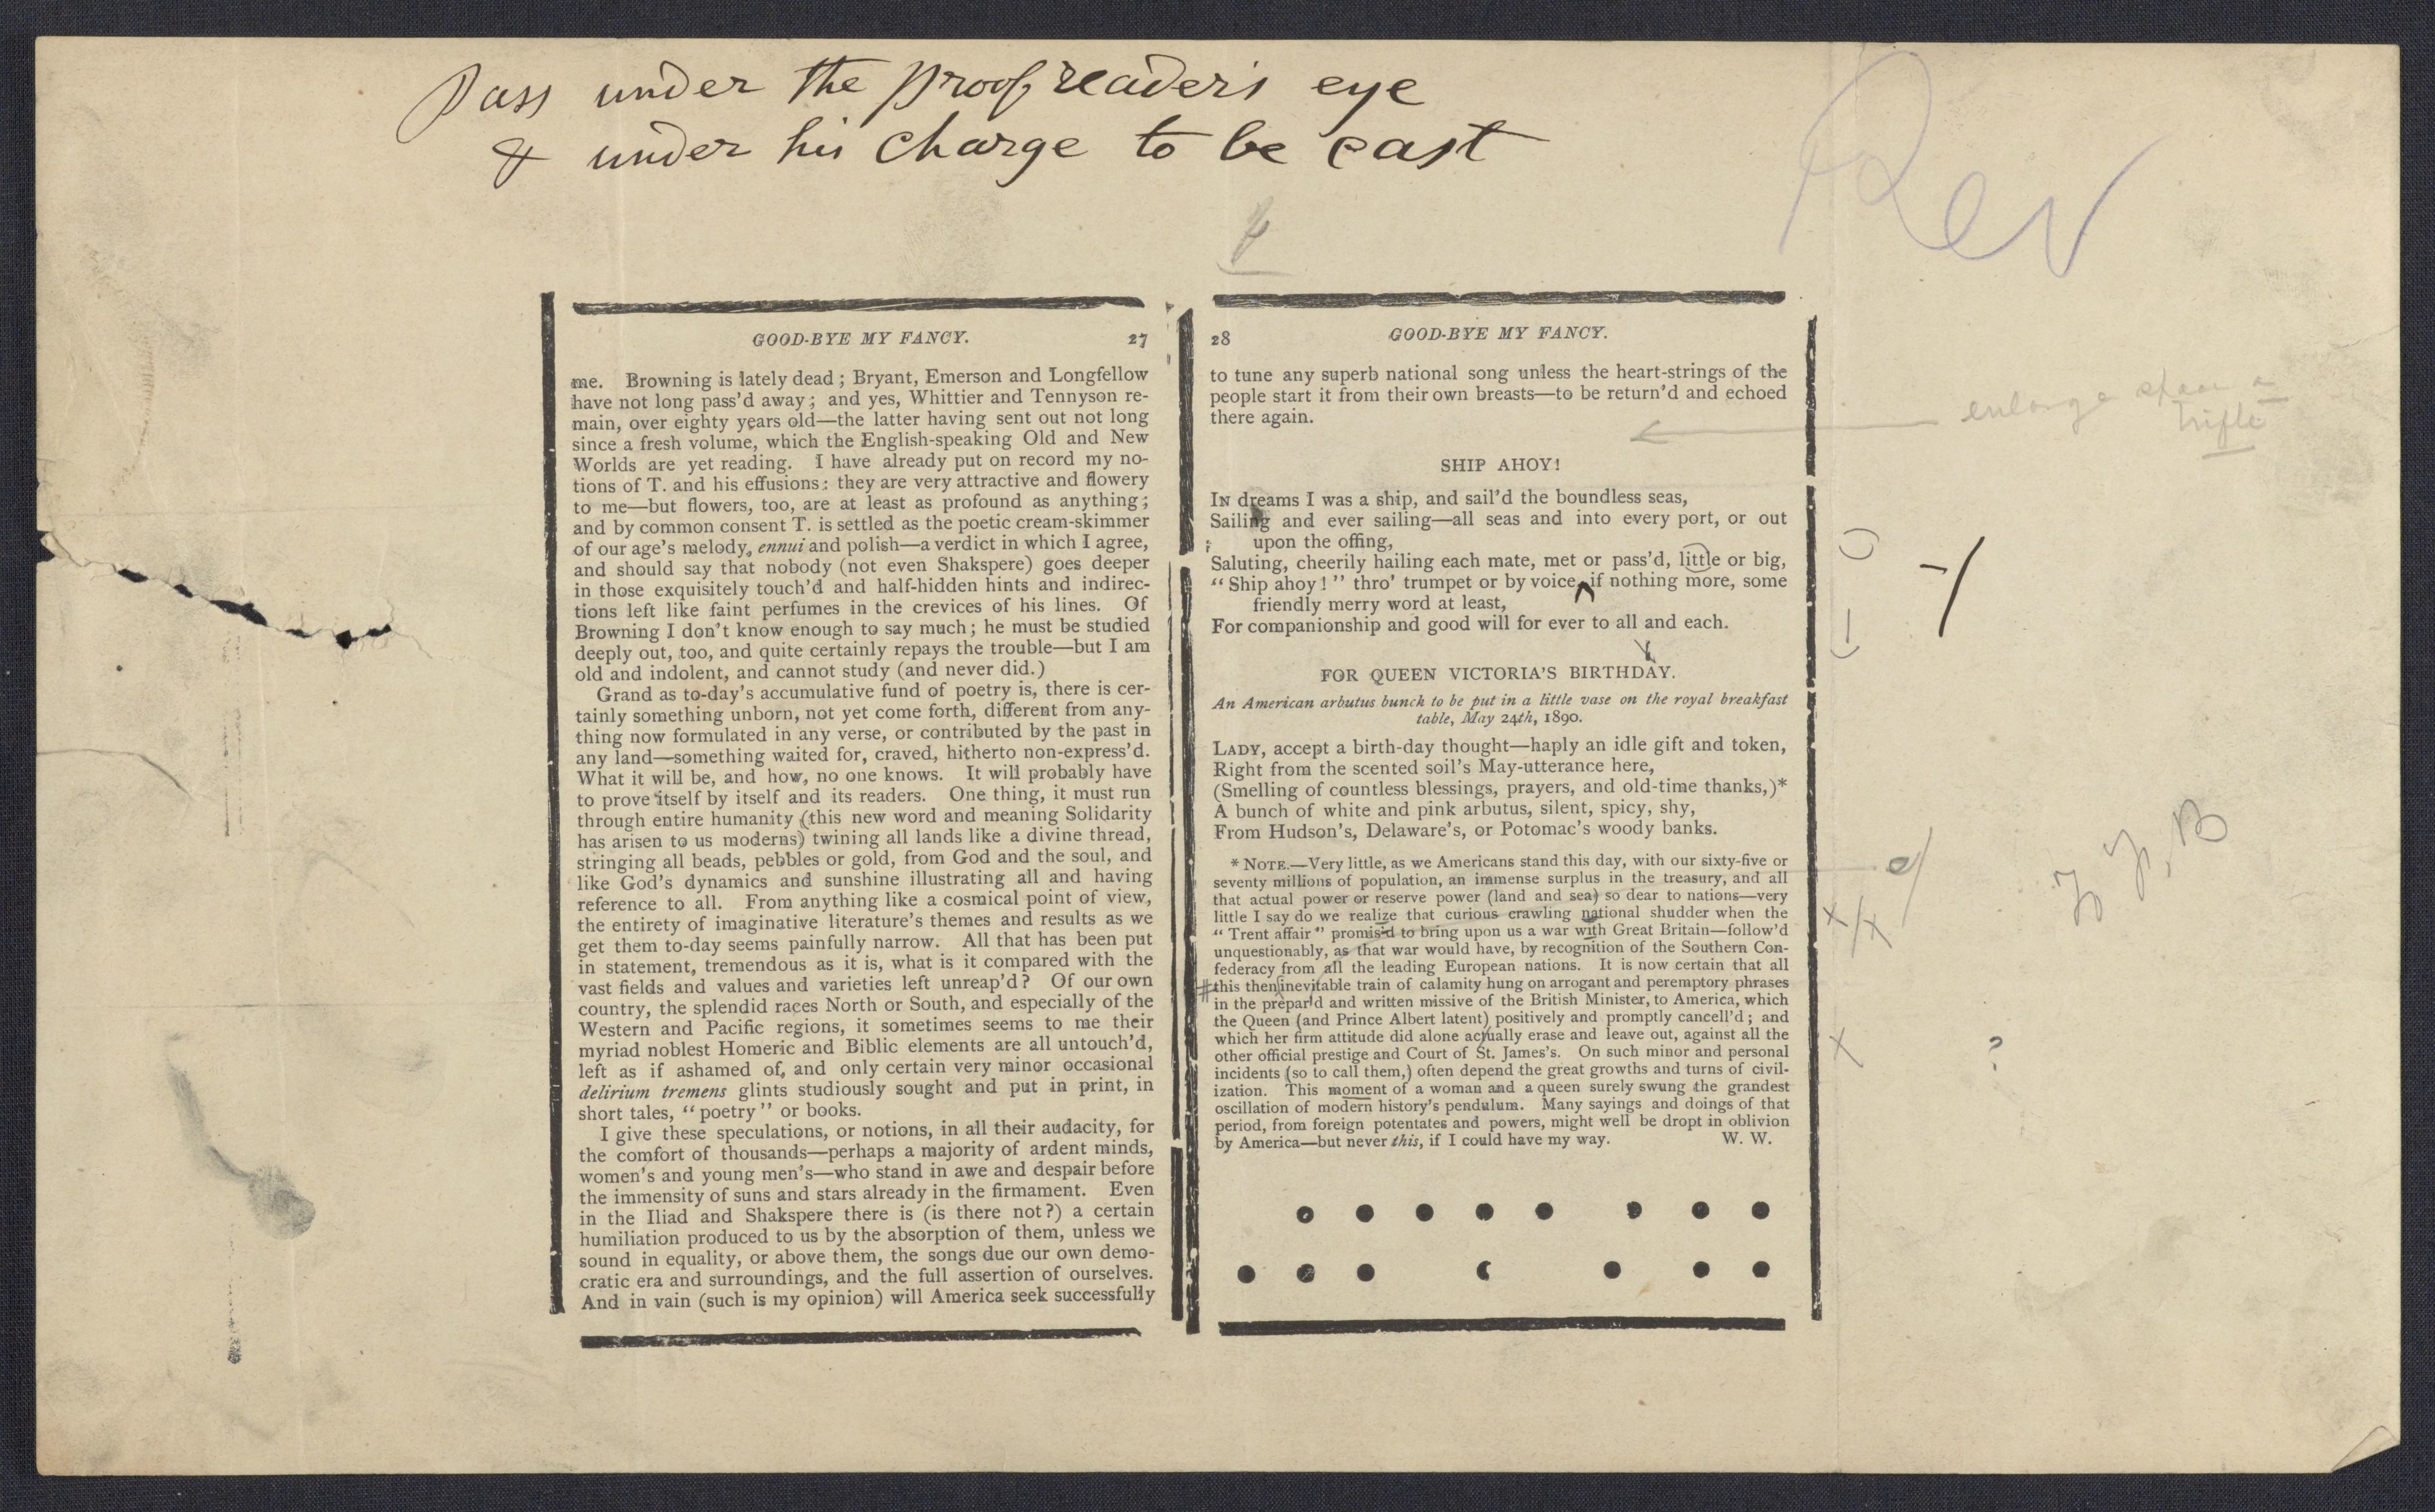 Pass under the proofreader's eye
& under his charge to be cast
Rev
GOOD-BYE MY FANCY. 27
me. Browning is lately dead; Bryant, Emerson and Longfellow
have not long pass'd away; and yes, Whittier and Tennyson re-
main, over eighty years old—the latter having sent out not long
since a fresh volume, which the English-speaking Old and New
Worlds are yet reading. I have already put on record my no-
tions of T. and his effusions: they are very attractive and flowery
to me—but flowers, too, are at least as profound as anything;
and by common consent T. is settled as the poetic cream-skimmer
of our age's melody, ennui and polish—a verdict in which I agree,
and should say that nobody (not even Shakspere) goes deeper
in those exquisitely touch'd and half-hidden hints and indirec-
tions left like faint perfumes in the crevices of his lines. Of
Browning I don't know enough to say much; he must be studied
deeply out, too, and quite certainly repays the trouble—but I am
old and indolent, and cannot study (and never did.)
Grand as to-day's accumulative fund of poetry is, there is cer-
tainly something unborn, not yet come forth, different from any-
thing now formulated in any verse, or contributed by the past in
any land—something waited for, craved, hitherto non-express'd.
What it will be, and how, no one knows. It will probably have
to prove itself by itself and its readers. One thing, it must run
through entire humanity (this new word and meaning Solidarity
has arisen to us moderns) twining all lands like a divine thread,
stringing all beads, pebbles or gold, from God and the soul, and
like God's dynamics and sunshine illustrating all and having
reference to all. From anything like a cosmical point of view,
the entirety of imaginative literature's themes and results as we
get them to-day seems painfully narrow. All that has been put
in statement, tremendous as it is, what is it compared with the
vast fields and values and varieties left unreap'd? Of our own
country, the splendid races North or South, and especially of the
Western and Pacific regions, it sometimes seems to me their
myriad noblest Homeric and Biblic elements are all untouch'd,
left as if ashamed of, and only certain very minor occasional
delirium tremens glints studiously sought and put in print, in
short tales, "poetry" or books.
I give these speculations, or notions, in all their audacity, for
the comfort of thousands—perhaps a majority of ardent minds,
women's and young men's—who stand in awe and despair before
the immensity of suns and stars already in the firmament. Even
in the Iliad and Shakspere there is (is there not?) a certain
humiliation produced to us by the absorption of them, unless we
sound in equality, or above them, the songs due our own demo-
cratic era and surroundings, and the full assertion of ourselves.
And in vain (such is my opinion) will America seek successfully
28 GOOD-BYE MY FANCY.
to tune any superb national song unless the heart-strings of the
people start it from their own breasts—to be return'd and echoed
there again.
enlarge space a
trifle
SHIP AHOY!
IN dreams I was a ship, and sail'd the boundless seas,
Sailing and ever sailing—all seas and into every port, or out
upon the offing,
Saluting, cheerily hailing each mate, met or pass'd, little or big,
"Ship ahoy!" thro' trumpet or by voice, if nothing more, some
friendly merry word at least,
For companionship and good will for ever to all and each.
FOR QUEEN VICTORIA'S BIRTHDAY.
An American arbutus bunch to be put in a little vase on the royal breakfast
table, May 24th, 1890.
LADY, accept a birth-day thought—haply an idle gift and token,
Right from the scented soil's May-utterance here,
(Smelling of countless blessings, prayers, and old-time thanks,)*
A bunch of white and pink arbutus, silent, spicy, shy,
From Hudson's, Delaware's, or Potomac's woody banks.
* NOTE.—Very little, as we Americans stand this day, with our sixty-five or
seventy millions of population, an immense surplus in the treasury, and all
that actual power or reserve power (land and sea) so dear to nations—very
little I say do we realize that curious crawling national shudder when the
"Trent affair" promis'd to bring upon us a war with Great Britain—follow'd
unquestionably, as that war would have, by recognition of the Southern Con-
federacy from all the leading European nations. It is now certain that all
this then inevitable train of calamity hung on arrogant and peremptory phrases
in the prepar'd and written missive of the British Minister, to America, which
the Queen (and Prince Albert latent) positively and promptly cancell'd; and
which her firm attitude did alone actually erase and leave out, against all the
other official prestige and Court of St. James's. On such minor and personal
incidents (so to call them,) often depend the great growths and turns of civil-
ization. This moment of a woman and a queen surely swung the grandest
oscillation of modern history's pendulum. Many sayings and doings of that
period, from foreign potentates and powers, might well be dropt in oblivion
by America—but never this, if I could have my way. W. W.